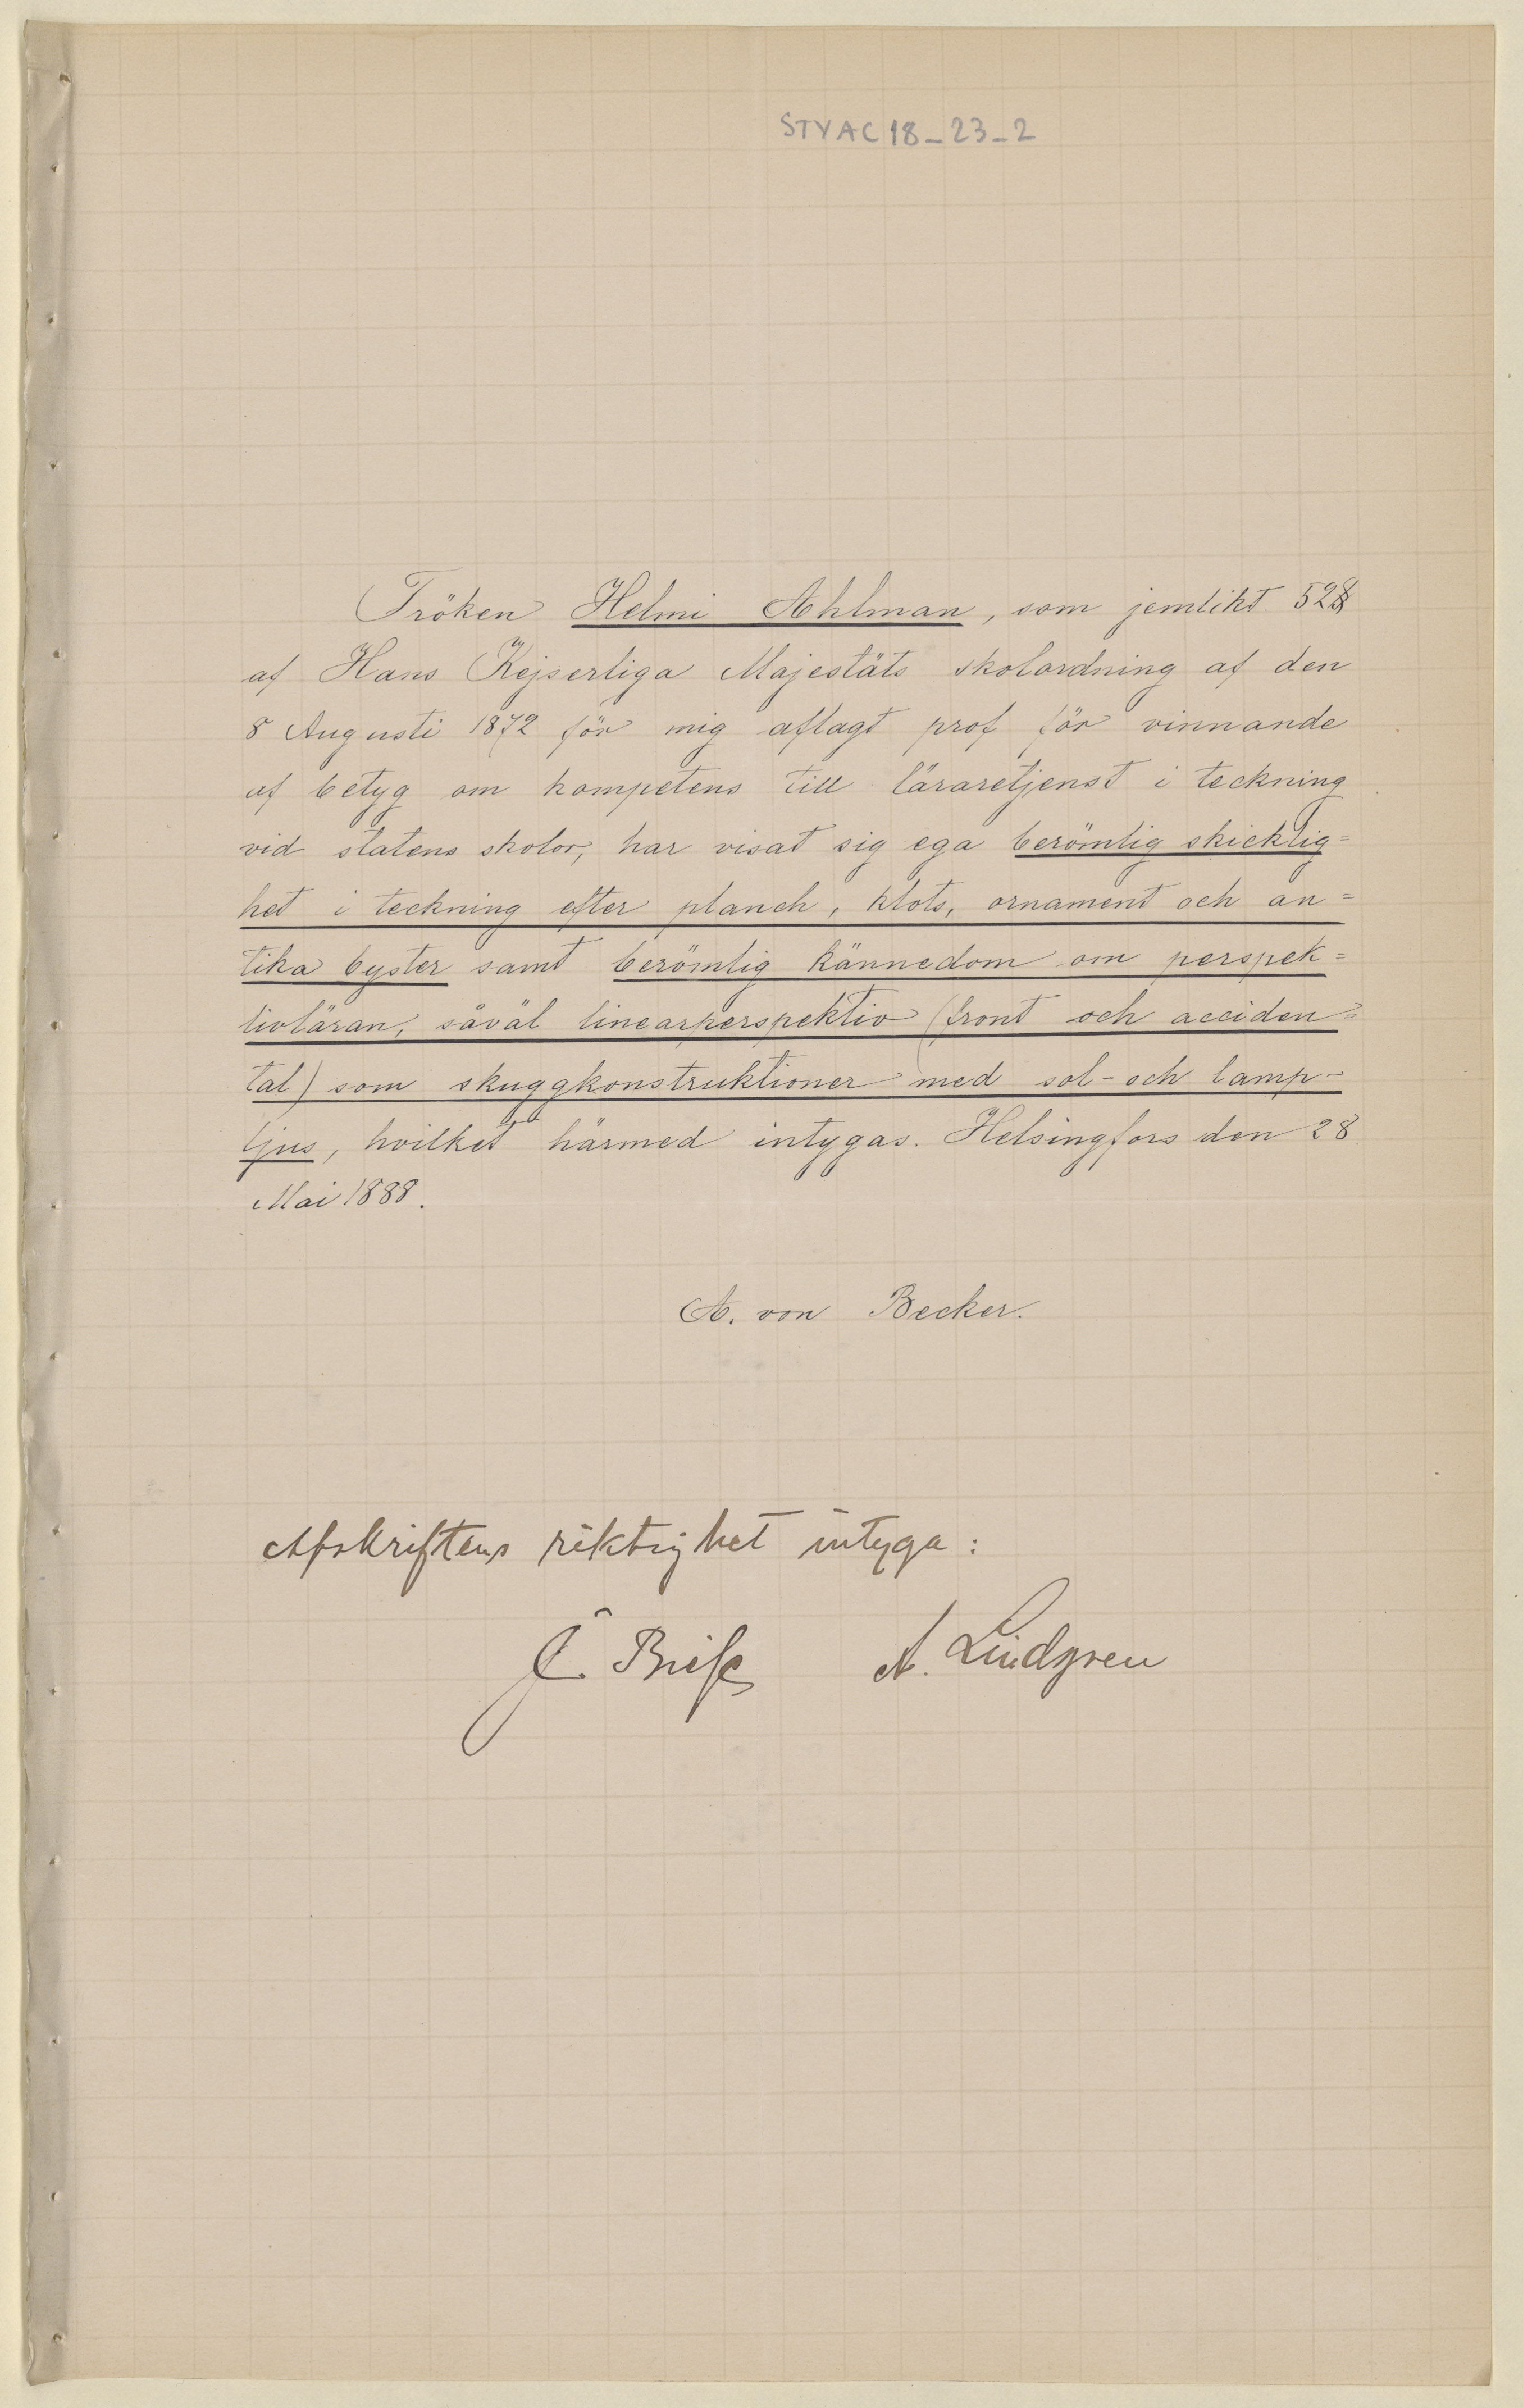 STYAC18_23_2
Fröken Helmi Ahlman, som jemlikt 52§
af Hans Kejserliga Majestäts skolordning af den
8 Augusti 1872 för mig aflagt prof för vinnande
af betyg om kompetens till läraretjenst i teckning
vid statens skolor, har visat sig ega berömlig skicklig=
het i teckning efter planch, klots, ornament och an=
tika byster samt berömlig kännedom om perspek=
tivläran, såväl linearperspektiv (front och acciden=
tal) som skuggkonstruktioner med sol- och lamp-
ljus, hvilket härmed intygas. Helsingfors den 28
Mai 1888.
A. von Becker.
Afskriftens riktighet intyga:
A. Lindgren